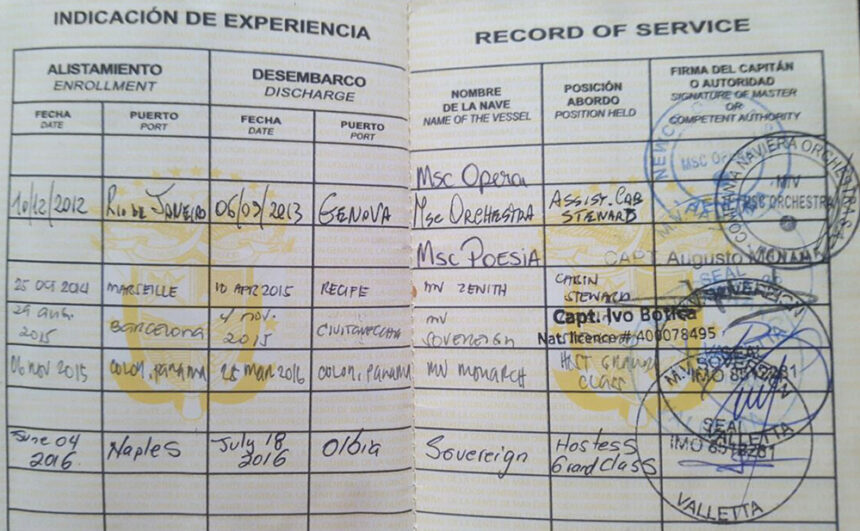 INDICACIÓN DE EXPERIENCIA
RECORD OF SERVICE
ALISTAMIENTO
ENROLLMENT
DESEMBARCO
DISCHARGE
NOMBRE
DE LA NAVE
NAME OF THE VESSEL
POSICIÓN
ABORDO
POSITION HELD
FIRMA DEL CAPITÁN
O AUTORIDAD
SIGNATURE OF MASTER
OR
COMPETENT AUTHORITY
FECHA
DATE
PUERTO
PORT
FECHA
DATE
PUERTO
PORT
Msc Opera
MSC OPERA
COMPAÑIA NAVIERA ORCHESTRA S.A.
M/V
MSC ORCHESTRA
PANAMA
10/12/2012 RIO DE JANEIRO 06/09/2013 GENOVA Msc ORCHESTRA ASSIST. CAB
STEWARD
Msc POESIA
CAPT. Augusto
25 OCT 2014 MARSEILLE 10 APR 2015 RECIFE MV ZENITH CABIN
STEWARD
SEAL
29 aug.
2015 BARCELONA 4 nov.
2015 CIVITAVECCHIA MV
SOVEREIGN
Capt. Ivo Botica
Nat. licence # 400078495
M.V. SOVEREIGN
06 NOV 2015 COLON, PANAMA 25 MAR 2016 COLON, PANAMA MV MONARCH HOST GRAND
CLASS
SEAL
IMO 8512281
VALLETTA
June 04
2016 Naples July 18
2016 Olbia Sovereign Hostess
Grand Class
M.V. SOVEREIGN
SEAL
IMO 8512281
VALLETTA